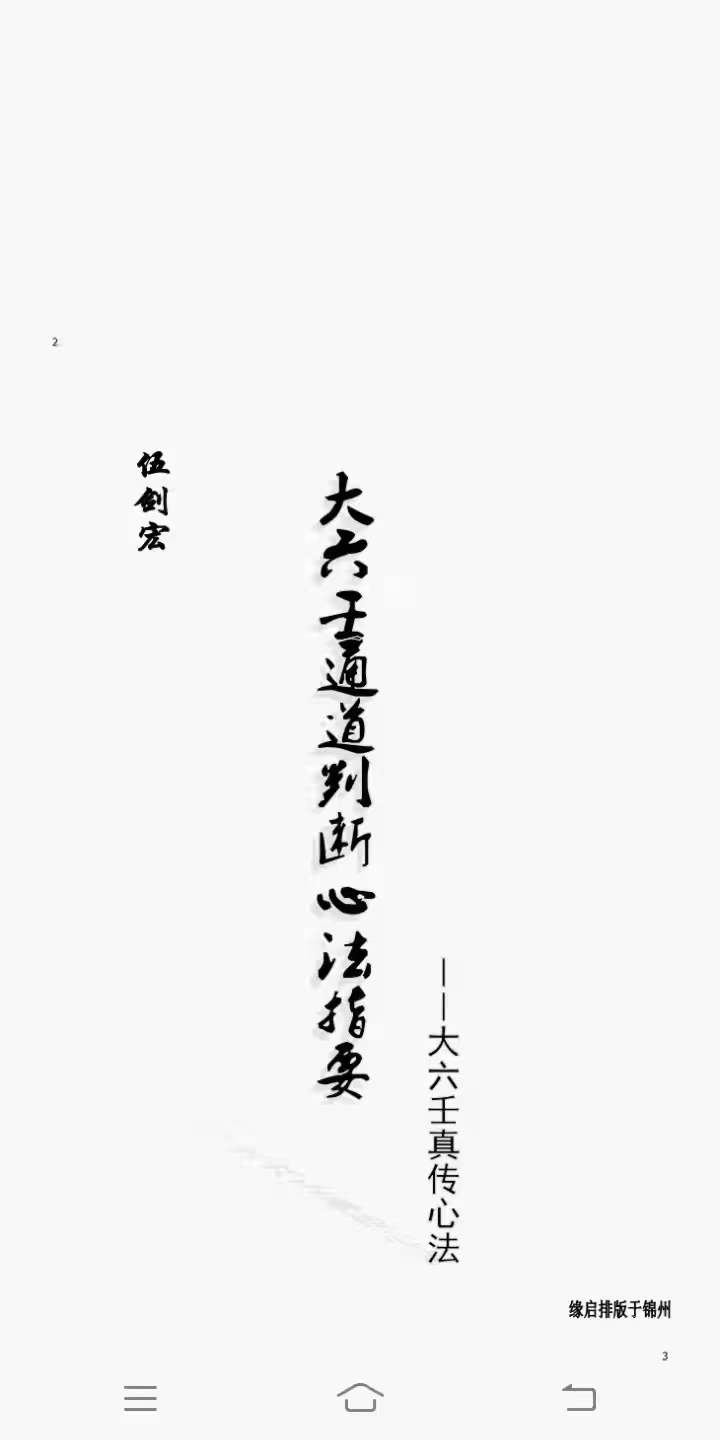 2
伍剑宏
大六壬通道判断心法指要
——大六壬真传心法
缘启排版于锦州
3